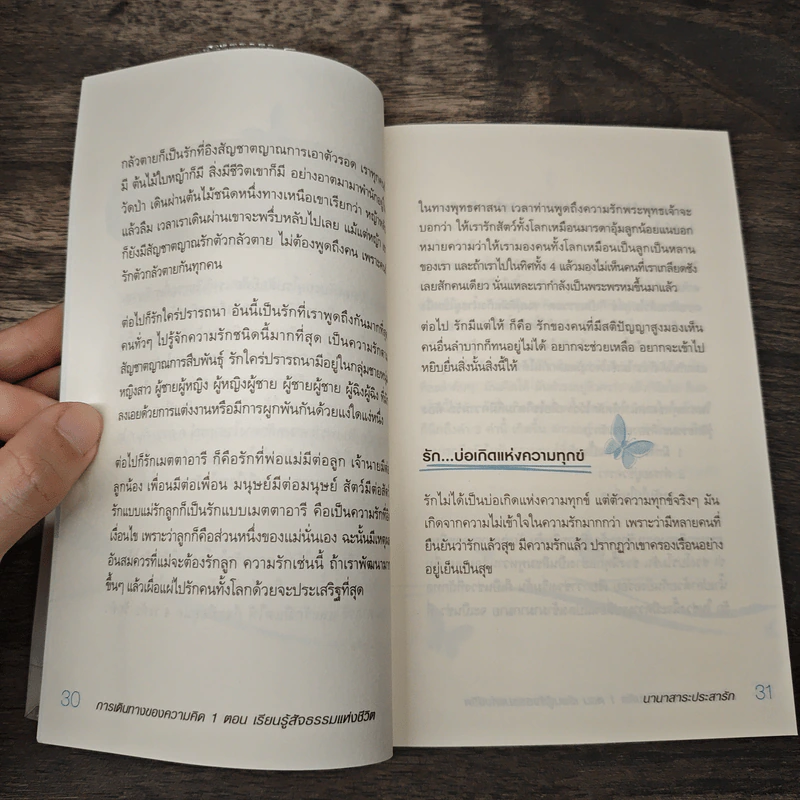 กลัวตายก็เป็นรักที่อิงสัญชาตญาณการเอาตัวรอด
มี ต้นไม้ใบหญ้าก็มี สิ่งมีชีวิตเขาก็มี อย่างอาตมามาพำนัก
วัดป่า เดินผ่านต้นไม้ชนิดหนึ่งทางเหนือเขาเรียกว่า
แล้วลืม เวลาเราเดินผ่านเขาจะพรึ่บหลับไปเลย แม้แต่หญ้า
ก็ยังมีสัญชาตญาณรักตัวกลัวตาย ไม่ต้องพูดถึงคน
รักตัวกลัวตายกันทุกคน
ต่อไปก็รักใคร่ปรารถนา อันนี้เป็นรักที่เราพูดถึงกันมาก
คนทั่วๆ ไปรู้จักความรักชนิดนี้มากที่สุด เป็นความรัก
สัญชาตญาณการสืบพันธุ์ รักใคร่ปรารถนามีอยู่ในกลุ่มชาย
หญิงสาว ผู้ชายผู้หญิง ผู้หญิงผู้ชาย ผู้ชายผู้ชาย ผู้ฉิงผู้ฉิง
ลงเอยด้วยการแต่งงานหรือมีการผูกพันกันด้วยแง่ใดแง่หนึ่ง
ต่อไปก็รักเมตตาอารี ก็คือรักที่พ่อแม่มีต่อลูก เจ้านายมี
ลูกน้อง เพื่อนมีต่อเพื่อน มนุษย์มีต่อมนุษย์ สัตว์มีต่อ
รักแบบแม่รักลูกก็เป็นรักแบบเมตตาอารี คือเป็นความรัก
เงื่อนไข เพราะว่าลูกก็คือส่วนหนึ่งของแม่นั่นเอง ฉะนั้นมี
อันสมควรที่แม่จะต้องรักลูก ความรักเช่นนี้ ถ้าเราพัฒนา
ขึ้นๆ แล้วเผื่อแผ่ไปรักคนทั้งโลกด้วยจะประเสริฐที่สุด
30 การเดินทางของความคิด 1 ตอน เรียนรู้สัจธรรมแห่งชีวิต
ในทางพุทธศาสนา เวลาท่านพูดถึงความรักพระพุทธเจ้าจะ
บอกว่า ให้เรารักสัตว์ทั้งโลกเหมือนมารดาอุ้มลูกน้อยแนบอก
หมายความว่าให้เรามองคนทั้งโลกเหมือนเป็นลูกเป็นหลาน
ของเรา และถ้าเราไปในทิศทั้ง 4 แล้วมองไม่เห็นคนที่เราเกลียดชัง
เลยสักคนเดียว นั่นแหละเรากำลังเป็นพระพรหมขึ้นมาแล้ว
ต่อไป รักมีแต่ให้ ก็คือ รักของคนที่มีสติปัญญาสูงมองเห็น
คนอื่นลำบากก็ทนอยู่ไม่ได้ อยากจะช่วยเหลือ อยากจะเข้าไป
หยิบยื่นสิ่งนั้นสิ่งนี้ให้
รัก...บ่อเกิดแห่งความทุกข์
รักไม่ได้เป็นบ่อเกิดแห่งความทุกข์ แต่ตัวความทุกข์จริงๆ มัน
เกิดจากความไม่เข้าใจในความรักมากกว่า เพราะว่ามีหลายคนที่
ยืนยันว่ารักแล้วสุข มีความรักแล้ว ปรากฏว่าเขาครองเรือนอย่าง
อยู่เย็นเป็นสุข
นานาสาระประสารัก 31